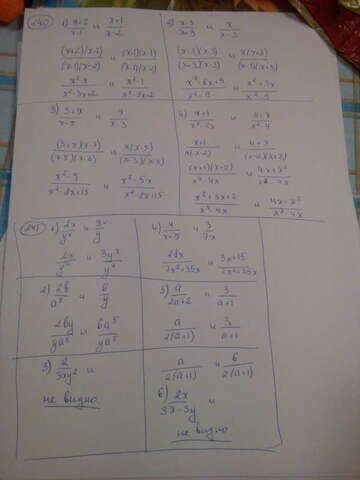 240
1) x+2/x-1 и x+1/x-2
(x+2)(x-2)/(x-1)(x-2) и (x+1)(x-1)/(x-1)(x-2)
x²-4/x²-3x+2 и x²-1/x²-3x+2
2) x-3/x+3 и x/x-3
(x-3)(x-3)/(x+3)(x-3) и x(x+3)/(x-3)(x+3)
x²-6x+9/x²-9 и x²+3x/x²-9
3) 3+x/x-5 и x/x-3
(3+x)(x-3)/(x-5)(x-3) и x(x-5)/(x-3)(x-5)
x²-9/x²-8x+15 и x²-5x/x²-8x+15
4) x+1/x²-2x и 4+x/x²-4
x+1/x(x-2) и 4+x/(x-2)(x+2)
(x+1)(x+2)/x³-4x и 4x+x²/x³-4x
x²+3x+2/x³-4x и 4x+x²/x³-4x
241
1) 2x/y⁴ и 3x/y
2) 2b/a⁵ и 6/y
2by/ya⁵ и 6a⁵/ya⁵
3) 2/3xy² и
не видно
4) 4/x+5 и 3/7x
28x/7x²+35x и 3x+15/7x²+35x
5) a/2a+2 и 3/a+1
a/2(a+1) и 3/a+1
a/2(a+1) и 6/2(a+1)
6) 2x/3x-3y и
не видно